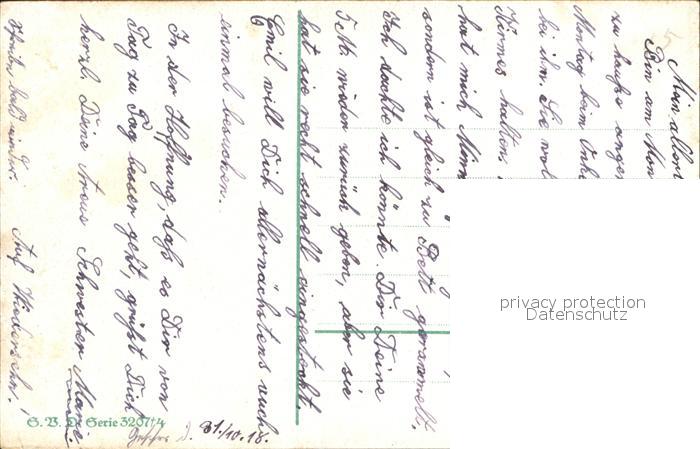 Mein allerl
Bin am Mon
zu hause ange
Montag beim Onke
bei ihm. Sie wol
Kirmes halten,
hat mich
sondern ist gleich zu Bett gerammelt.
Ich dachte ich könnte Dir Deine
5 M wieder zurück geben, aber sie
hat sie recht schnell eingesteckt.
Emil will Dich allernächstens auch
einmal besuchen.
In der Hoffnung, daß es Dir von
Tag zu Tag besser geht, grüßt Dich
herzl. Deine treue Schwester Marie.
bald wieder. Auf Wiedersehn!
S. V. D. Serie 3207/4
31/10.18.
privacy protection
Datenschutz